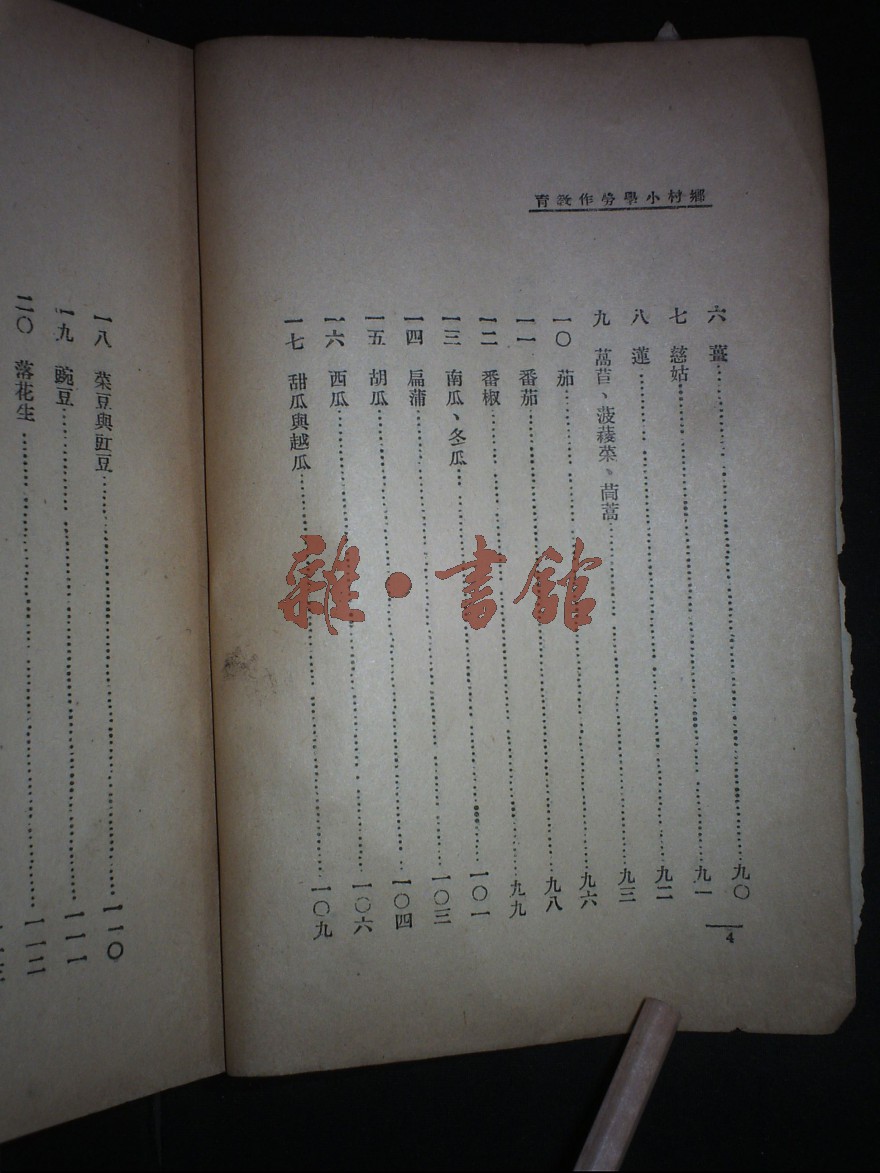 鄉村小學勞作教育
六 薑 九〇
七 慈姑 九一
八 蓮 九二
九 萵苣、菠薐菜、茼蒿 九三
一〇 茄 九六
一一 番茄 九八
一二 番椒 九九
一三 南瓜、冬瓜 一〇一
一四 扁蒲 一〇三
一五 胡瓜 一〇四
一六 西瓜 一〇六
一七 甜瓜與越瓜 一〇九
4
一八 菜豆與豇豆 一一〇
一九 豌豆 一一一
二〇 落花生 一一二
雜·書館